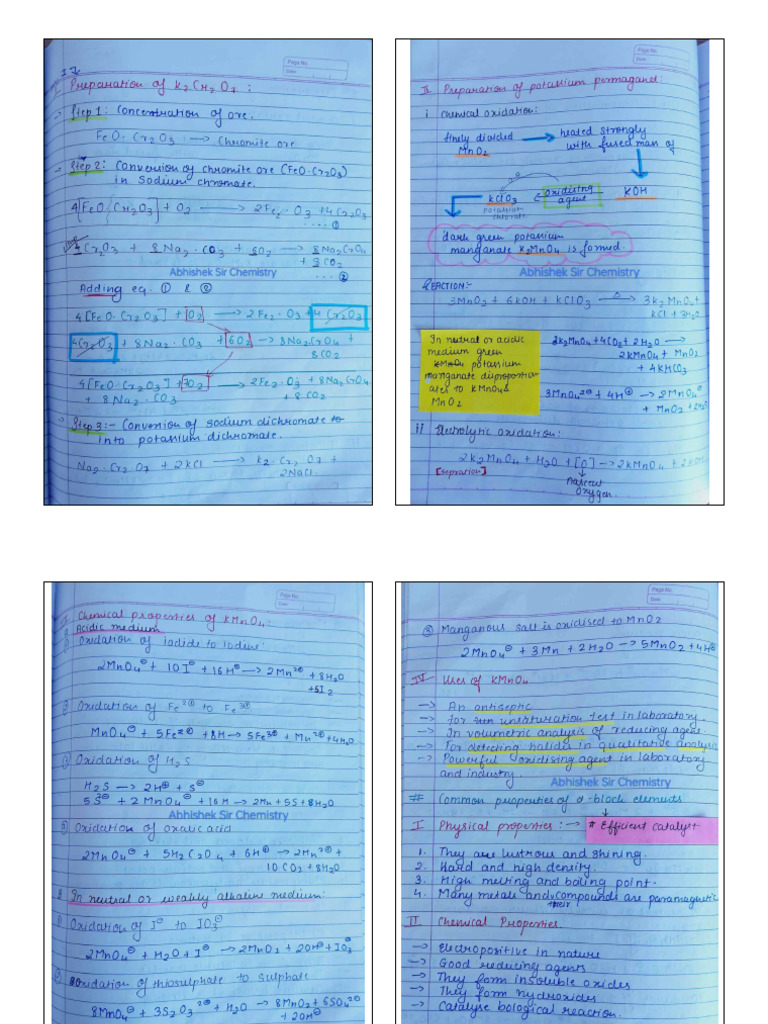 Page No.
Date
I Preparation of K2Cr2O7 :
Step 1 : Concentration of ore.
FeO · Cr2O3 : → Chromite ore
Step 2 : Conversion of chromite ore (FeO·Cr2O3)
in sodium chromate.
4[FeO·(Cr2O3] + O2 → 2Fe2·O3 + 4Cr2O3
.... ①
4Cr2O3 + 8Na2·CO3 + 6O2 → 8Na2CrO4
+ 8CO2
.... ②
Abhishek Sir Chemistry
Adding eq. ① & ②
4[FeO·Cr2O3] + O2 → 2Fe2·O3 + 4Cr2O3
4Cr2O3 + 8Na2·CO3 + 6O2 → 8Na2CrO4 +
8CO2
4[FeO·Cr2O3] + 7O2 → 2Fe2·O3 + 8Na2CrO4
+ 8Na2·CO3 + 8CO2
Step 3 :- Conversion of sodium dichromate to
into potassium dichromate.
Na2·Cr2O7 + 2KCl → K2·Cr2O7 +
2NaCl
Page No.
Date
II Preparation of potassium permaganet:
i chemical oxidation:
finely divided → heated strongly
MnO2 with fused man of
KClO3 < oxidising agent KOH
potassium
chlorate
dark green potassium
manganate K2MnO4 is formed.
Abhishek Sir Chemistry
REACTION:-
3MnO2 + 6KOH + KClO3 △→ 3K2MnO4 +
KCl + 3H2O
In neutral or acidic
medium green
KMnO4 potassium
manganate disproportion
ates to KMnO4 &
MnO2
3K2MnO4 + 4CO2 + 2H2O →
2KMnO4 + MnO2
+ 4KHCO3
3MnO4²⊖ + 4H⊕ → 2MnO4⊖
+ MnO2 + 2H2O
ii Electrolytic oxidation:
2K2MnO4 + H2O + [O] → 2KMnO4 + 2KOH
[sepration]
Nascent
oxygen.
Page No.
Date
Chemical properties of KMnO4:
Acidic medium
① Oxidation of iodide to iodine:
2MnO4⊖ + 10I⊖ + 16H⊕ → 2Mn²⊕ + 8H2O
+5I2
② Oxidation of Fe²⊕ to Fe³⊕
MnO4⊖ + 5Fe²⊕ + 8H → 5Fe³⊕ + Mn²⊕ + 4H2O
Oxidation of H2S
H2S → 2H⊕ + S⊖
5S⊖ + 2MnO4⊖ + 16H → 2Mn + 5S + 8H2O
Abhishek Sir Chemistry
Oxidation of oxalic acid
2MnO4⊖ + 5H2C2O4 + 6H⊕ → 2Mn²⊕ +
10CO2 + 8H2O
In neutral or weakly alkaline medium:
① Oxidation of I⊖ to IO3⊖
2MnO4⊖ + H2O + I⊖ → 2MnO2 + 2OH⊖ + IO3⊖
② Oxidation of thiosulphate to sulphate
8MnO4⊖ + 3S2O3²⊖ + H2O → 8MnO2 + 6SO4²⊖
+ 2OH⊖
Page No.
Date
③ Manganous salt is oxidised to MnO2
2MnO4⊖ + 3Mn + 2H2O → 5MnO2 + 4H⊕
IV Uses of KMnO4
→ An antiseptic
→ For unsaturation test in laboratory.
→ In volumetric analysis of reducing agent.
→ For detecting halids in quantitative analysis
→ Powerful oxidising agent in laboratory
and industry.
Abhishek Sir Chemistry
# Common properties of d-block elements
I Physical properties :→ # Efficient catalyst
1. They are lustrous and shining.
2. Hard and high density.
3. High melting and boiling point.
4. Many metals and their compounds are paramagnetic
II Chemical Properties
→ Electropositive in nature
→ Good reducing agents
→ They form insoluble oxides
→ They form hydroxides
→ Catalyse biological reaction.